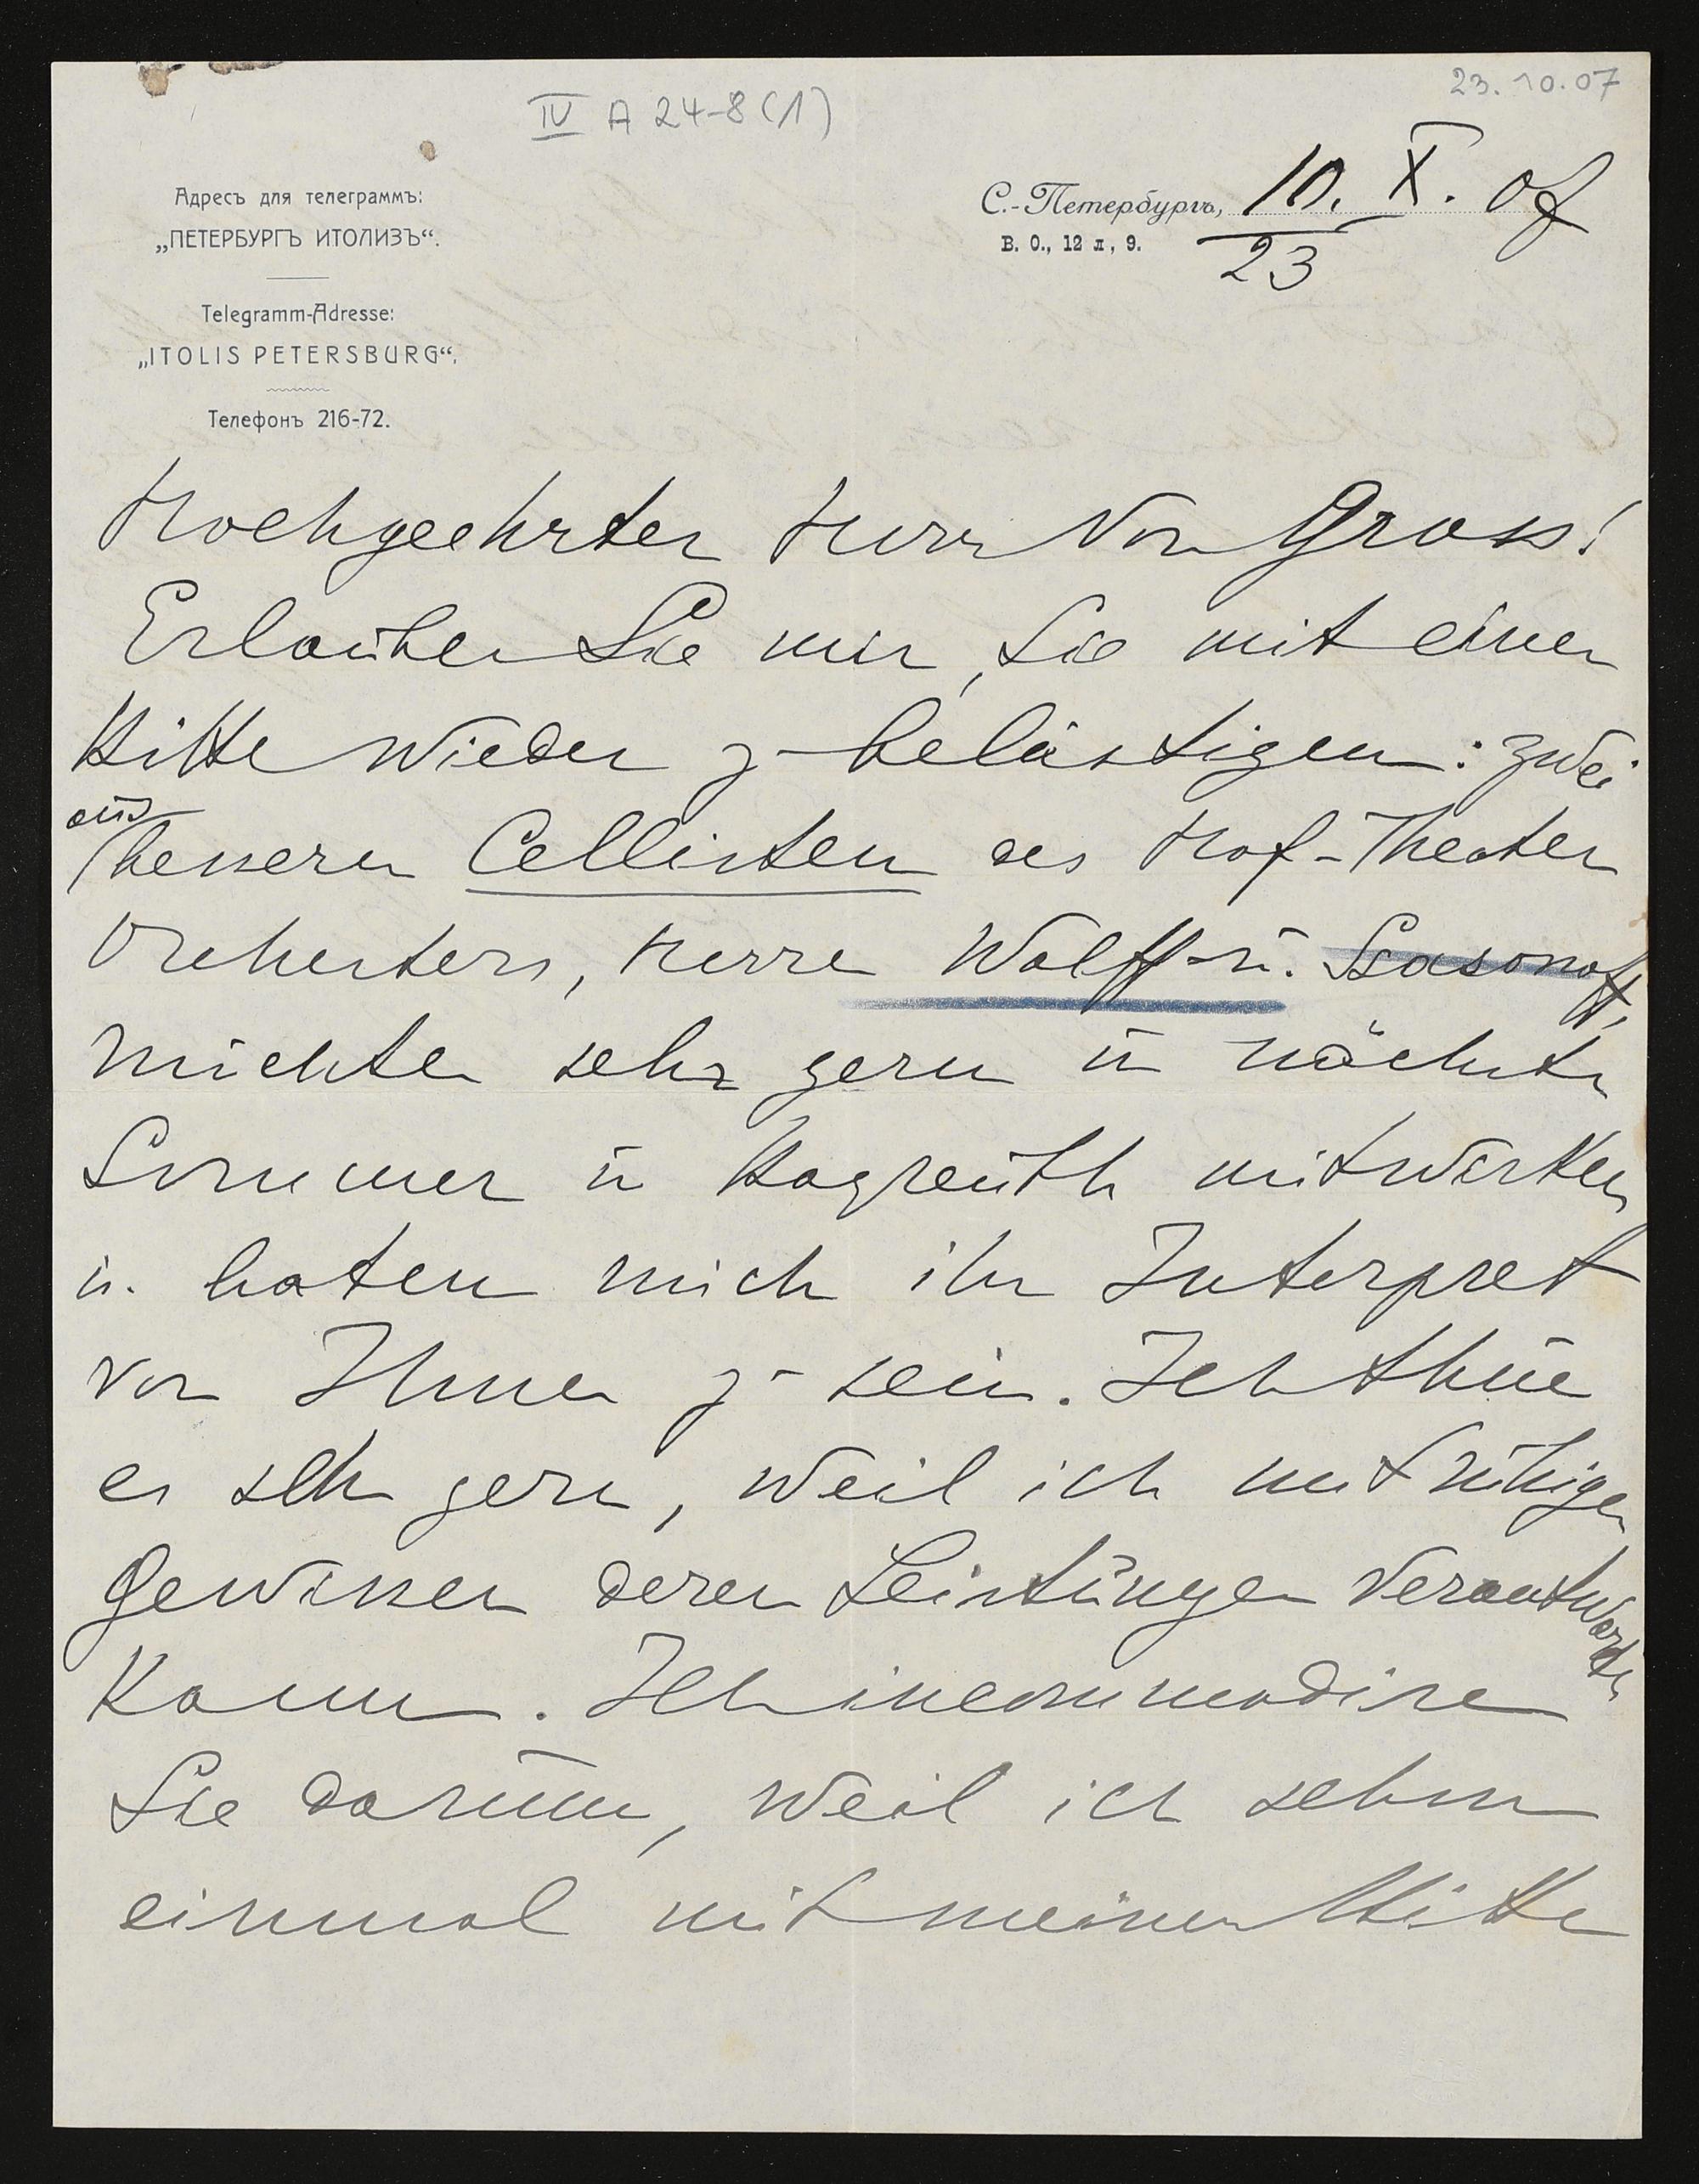 23.10.07
IV A 24-8 (1)
Адресъ для телеграммъ:
„ПЕТЕРБУРГЪ ИТОЛИЗЪ“.
Telegramm-Adresse:
„ITOLIS PETERSBURG“.
Телефонъ 216-72.
С.-Петербургъ, 10. X. 07
В. О., 12 л, 9.
23
Hochgeehrter Herr von Gross!
Erlauben Sie mir, Sie mit einer
Bitte wieder z- belästigen: zwei
aus
besseren Cellisten des Hof-Theater
Orchesters, Herren Wolff u. Ssasonoff,
möchten sehr gern in nächsten
Sommer in Bayreuth mitwirken
u. baten mich ihr Interpret
vor Ihnen z- sein. Ich thue
es sehr gern, weil ich mit ruhigen
Gewissen deren Leistungen verantworten
kann. Ich incommodire
Sie darum, weil ich schon
einmal mit meiner Bitte